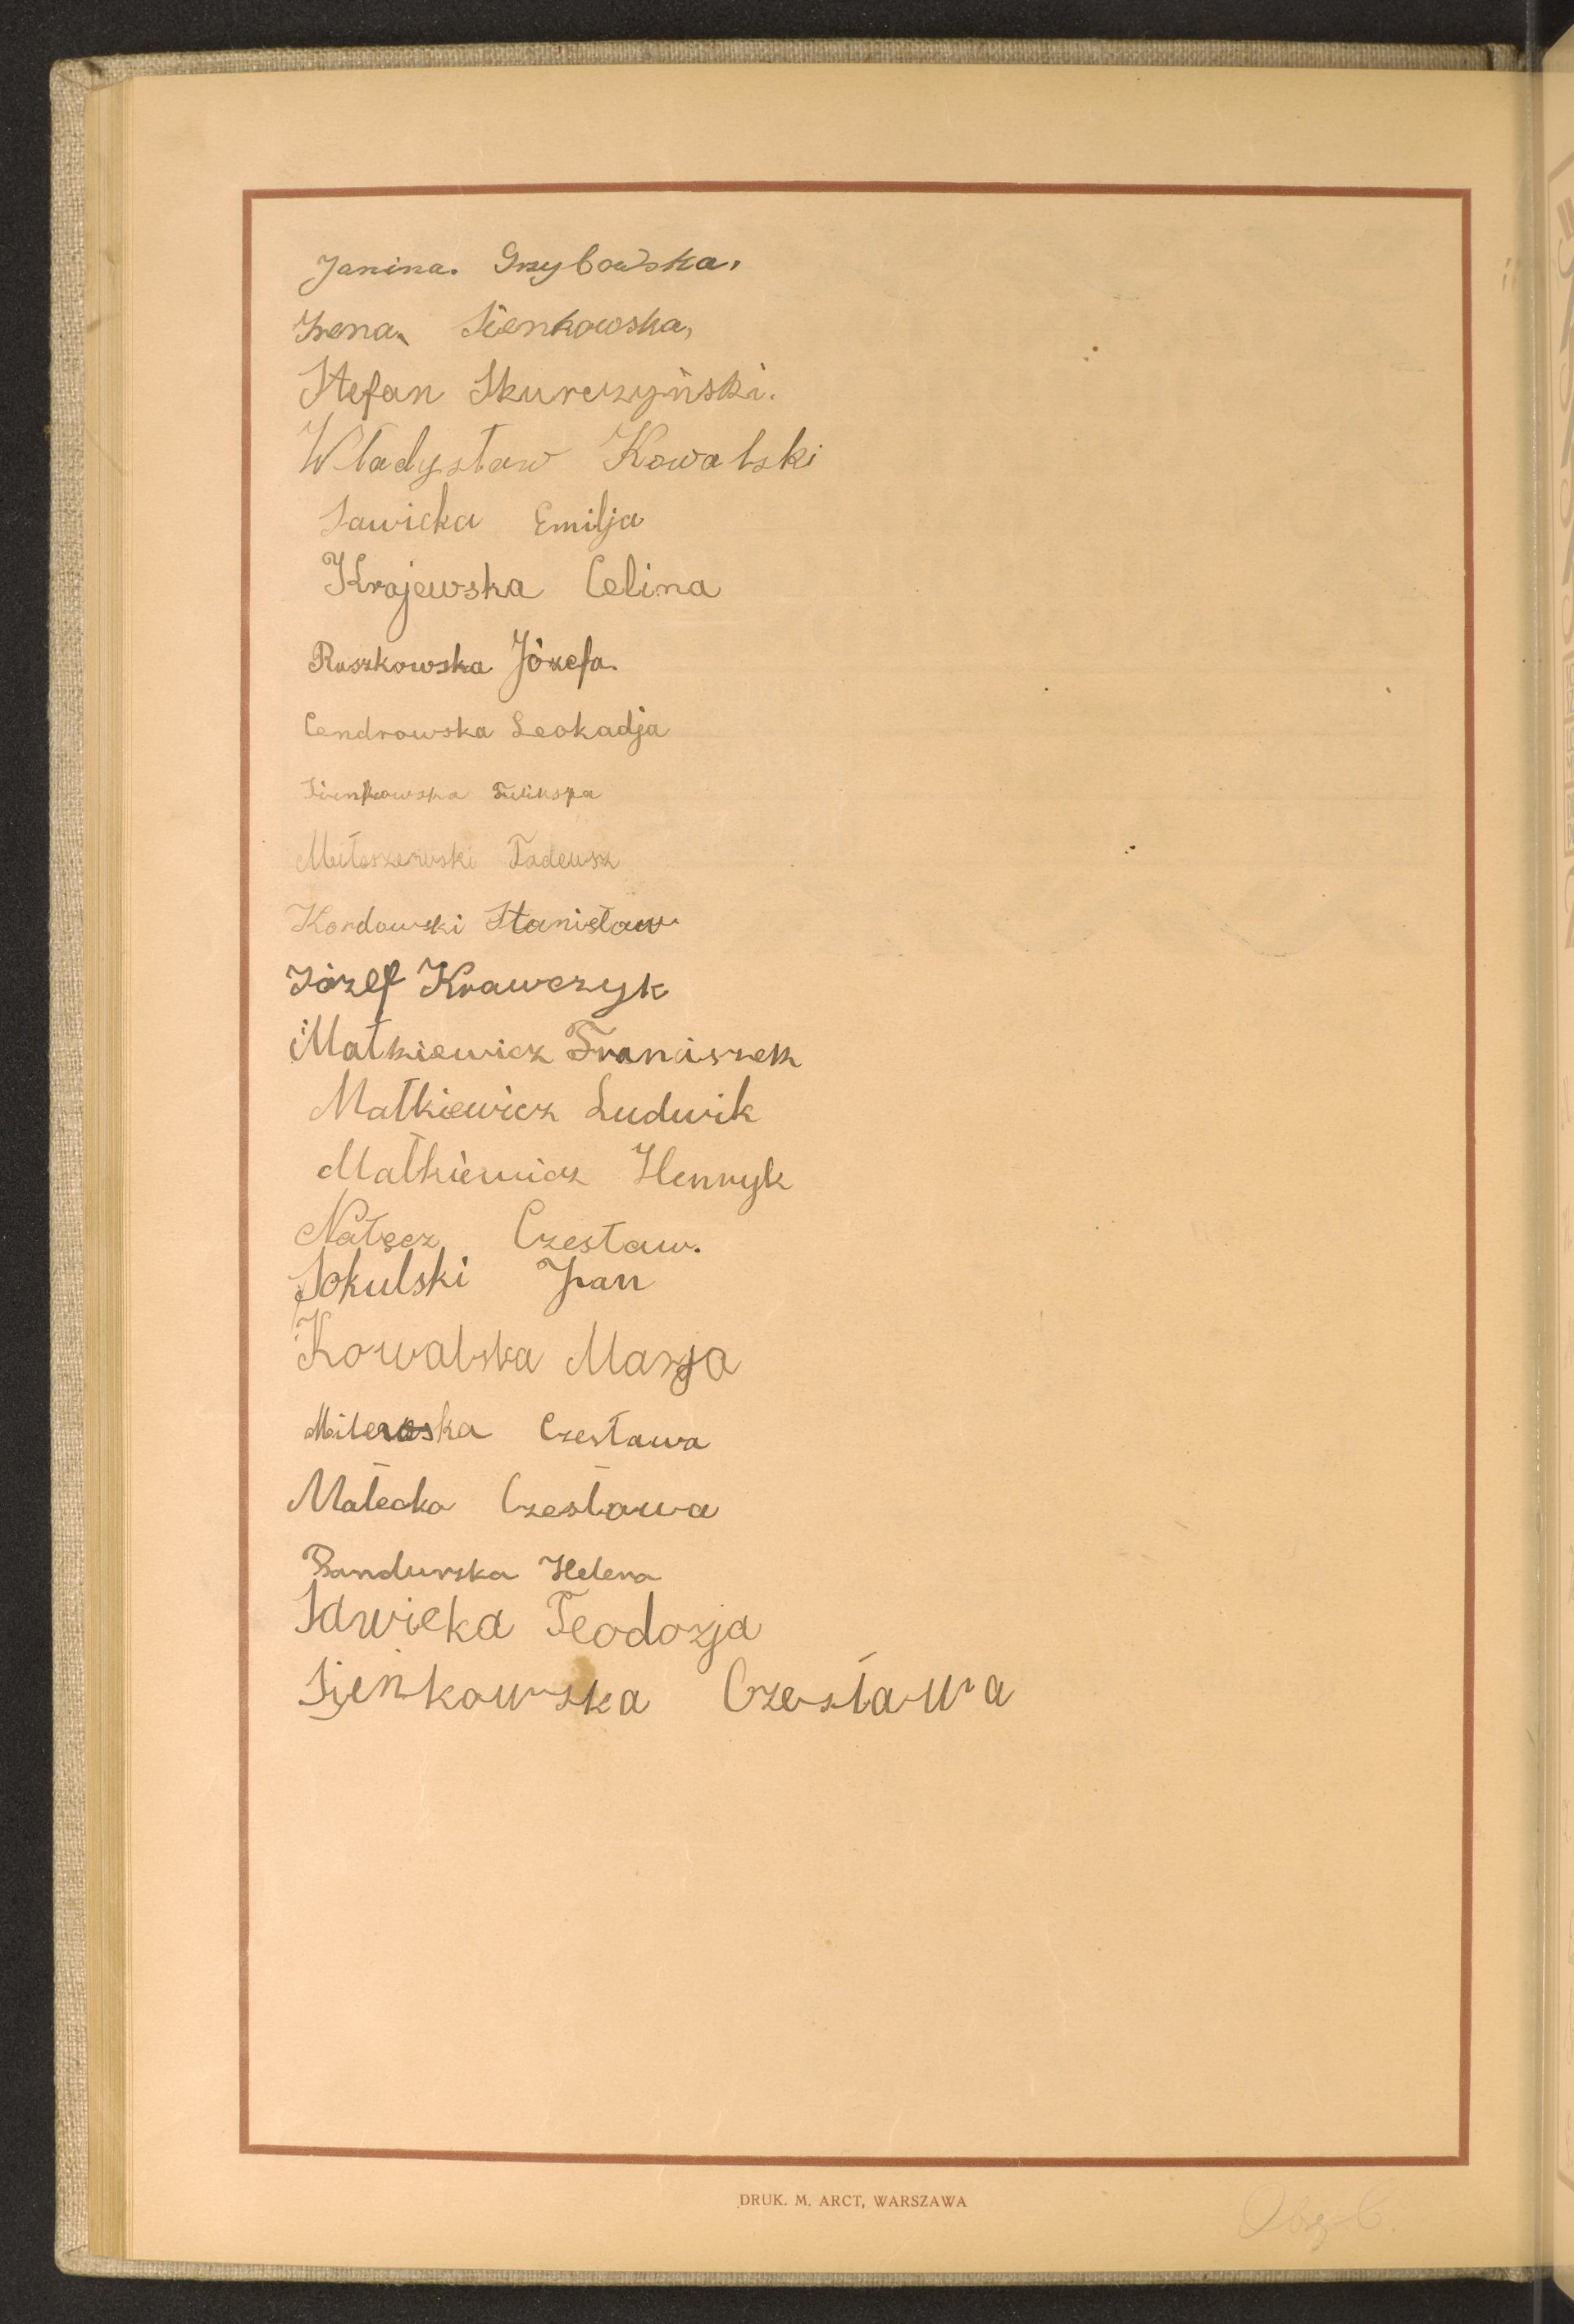 Janina. Grzybowska,
Irena, Sienkowska,
Stefan Skurczyński.
Władysław Kowalski
Sawicka Emilja
Krajewska Celina
Ruszkowska Józefa.
Cendrowska Leokadja
Sienkowska
Miłoszewski Tadeusz
Kordowski Stanisław
Józef Krawczyk
Małkiewicz Franciszek
Małkiewicz Ludwik
Małkiewicz Henryk
Nałęcz Czesław.
Sokulski Jan
Kowalska Marja
Czesława
Małecka Czesława
Bandurska Helena
Sawicka Teodozja
Sieńkowska Czesława
DRUK. M. ARCT, WARSZAWA